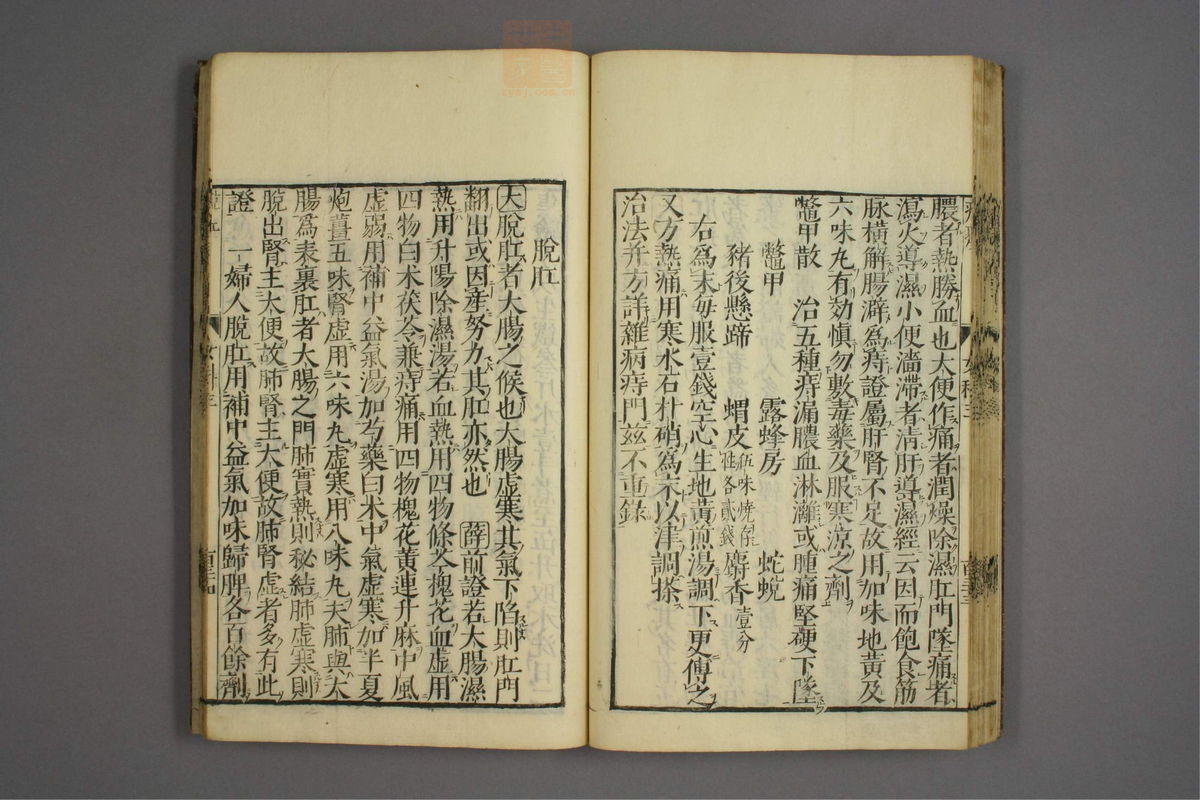 膿者熱勝血也大便作痛者潤燥除濕肛門墜痛者
瀉火導濕小便濇滯者清肝導濕經云因而飽食筋
脉橫解腸澼爲痔證屬肝腎不足故用加味地黃及
六味丸有効慎勿敷毒藥及服寒涼之劑
鼈甲散 治五種痔漏膿血淋漓或腫痛堅硬下墜
鼈甲 露蜂房 蛇蛻
豬後懸蹄 蝟皮 伍味燒存性各貳錢 麝香 壹分
右爲末每服壹錢空心生地黃煎湯調下更傅之
又方熱痛用寒水石朴硝爲末以津調搽
治法并方詳雜病痔門茲不重錄
脫肛
大脫肛者大腸之候也大腸虛寒其氣下陷則肛門
翻出或因產努力其肛亦然也 薛前證若大腸濕
熱用升陽除濕湯若血熱用四物條芩槐花血虛用
四物白木茯苓兼痔痛用四物槐花黃連升麻中風
虛弱用補中益氣湯加芍藥白木中氣虛寒加半夏
炮薑五味腎虛用六味丸虛寒用八味丸夫肺與大
腸爲表裏肛者大腸之門肺實熱則秘結肺虛寒則
脫出腎主大便故肺腎主大便故肺腎虛者多有此
證 一婦人脫肛用補中益氣加味歸脾各百餘劑
女科三